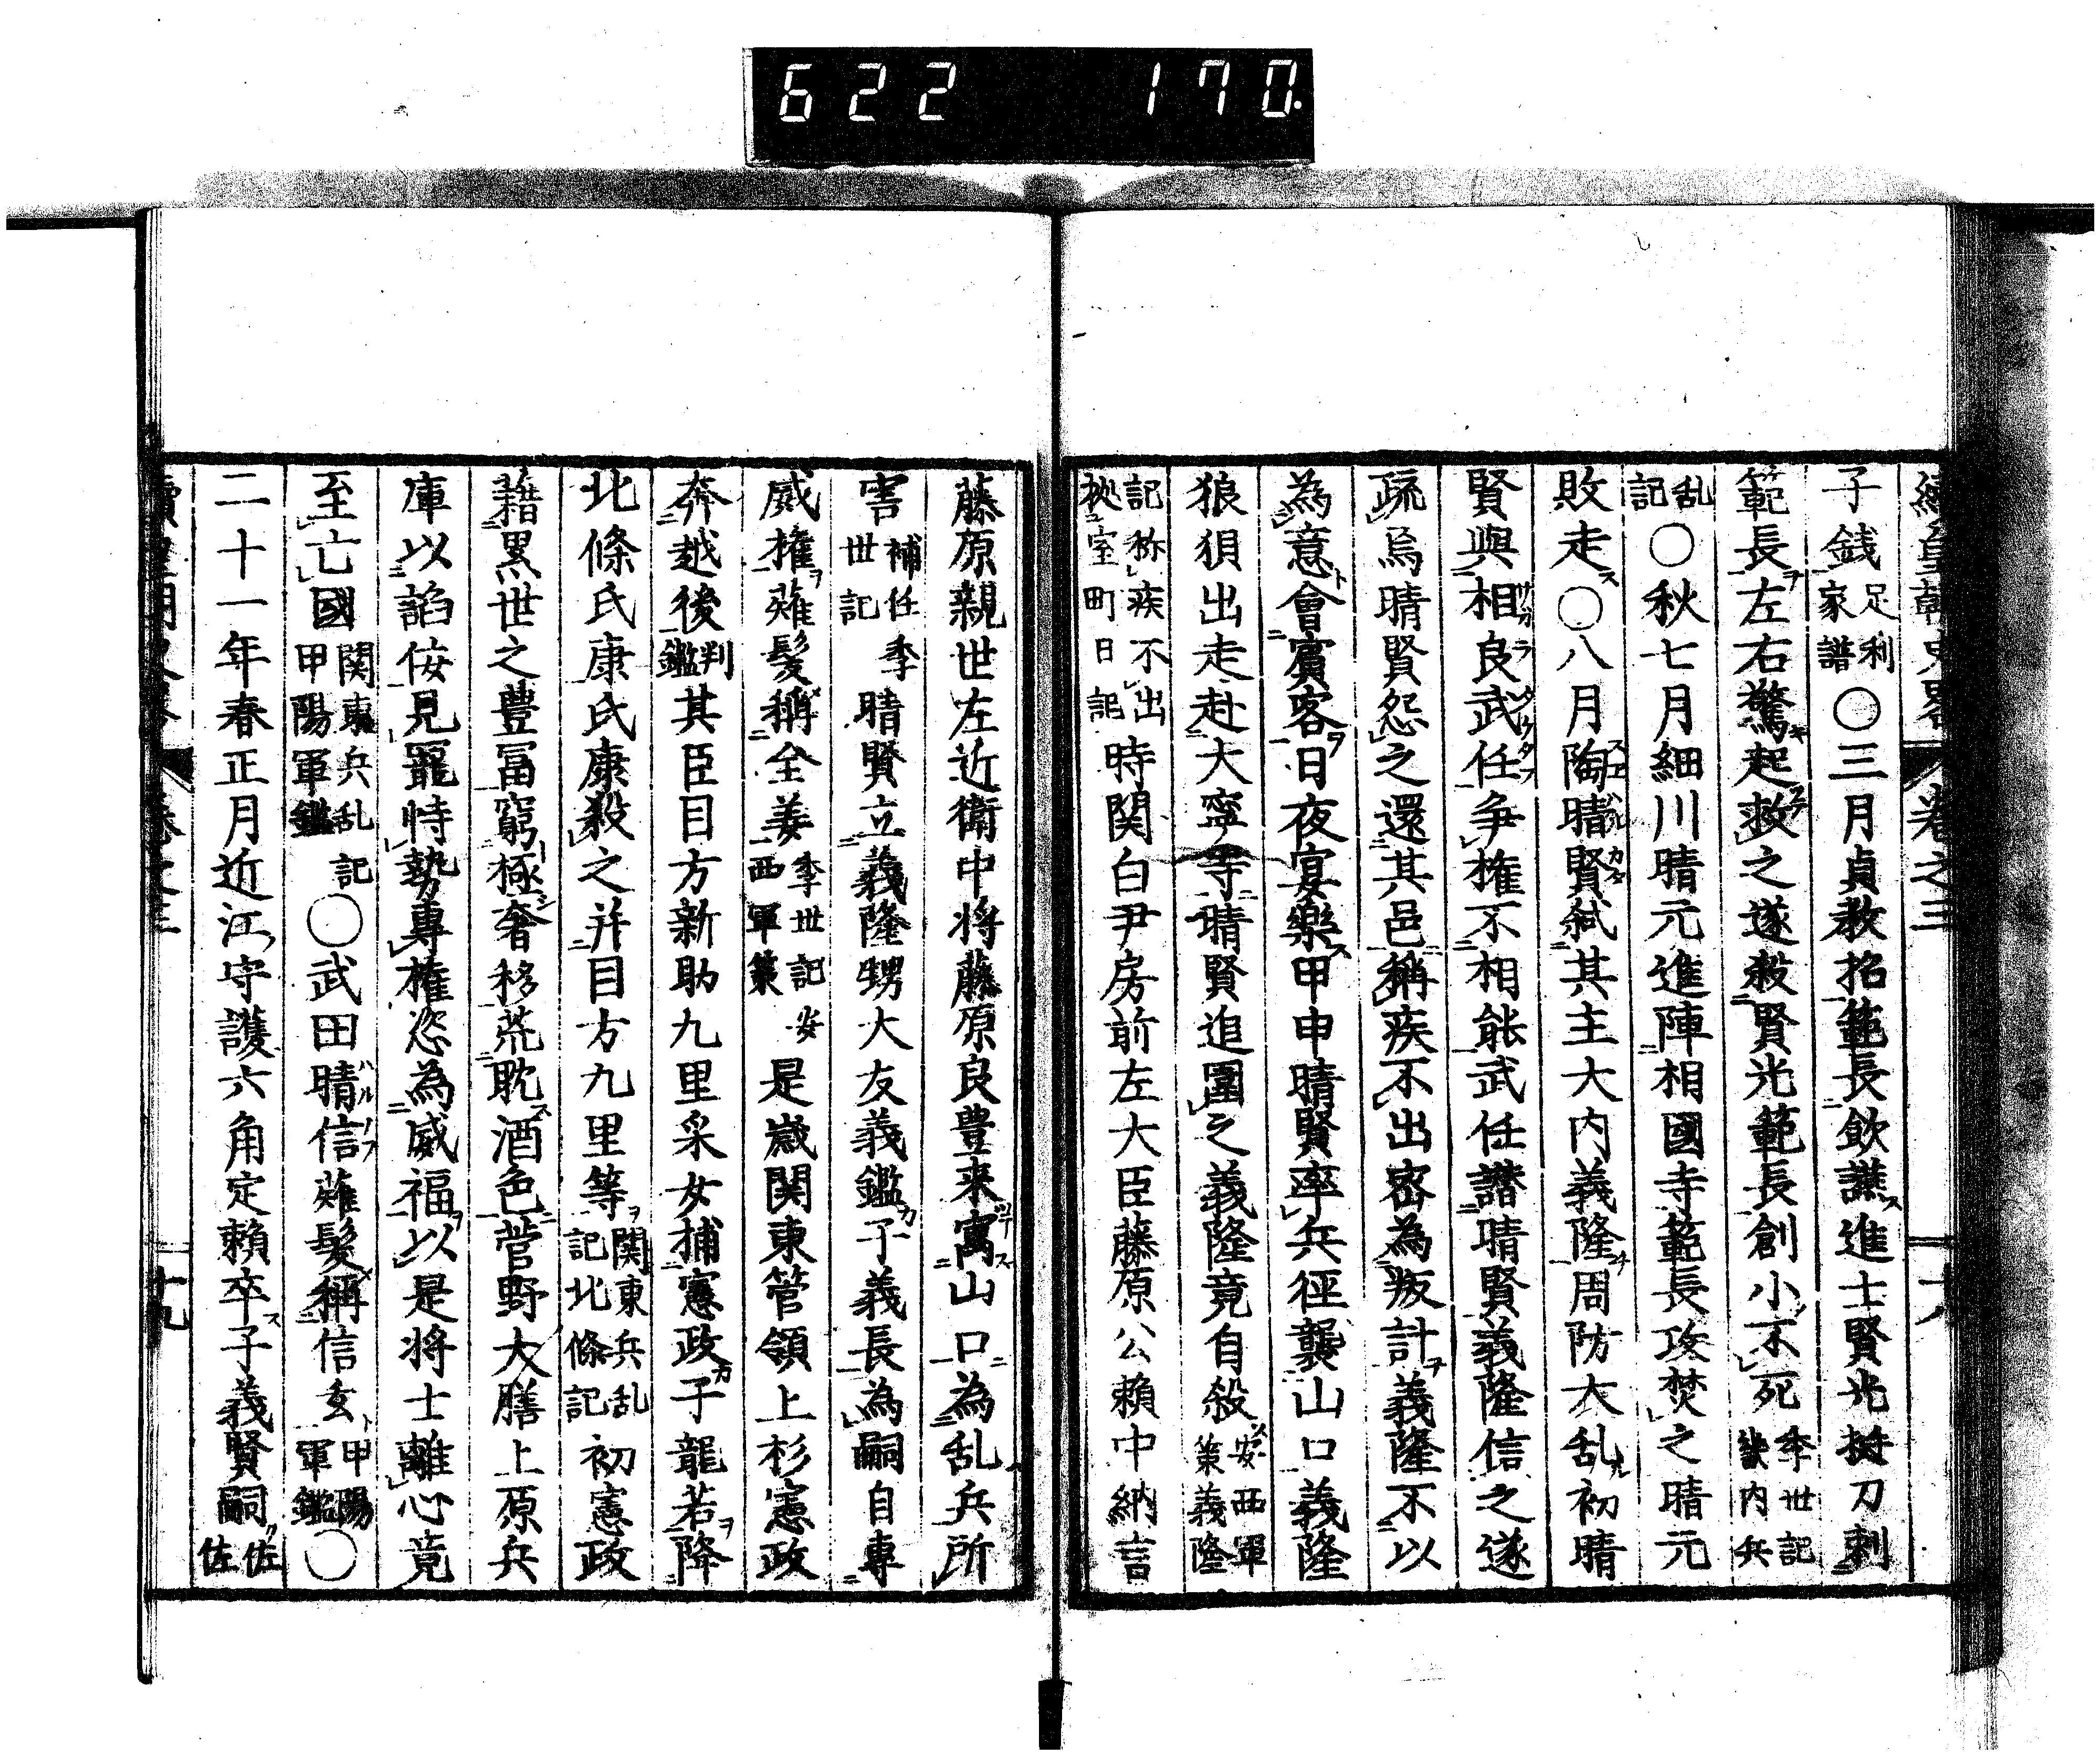 622 170.
續皇朝史畧 卷之三 十八
子錢足利家譜〇三月貞教招範長飲讌進士賢光挺刀刺
範長左右驚起救之遂殺賢光範長創小不死季世記缺内兵
乱記〇秋七月細川晴元進陣相國寺範長攻焚之晴元
敗走〇八月陶晴賢弑其主大内義隆周防大乱初晴
賢與相良武任争権不相能武任譖晴賢義隆信之遂
疏焉晴賢怨之還其邑稱疾不出密為叛計義隆不以
為意會賓客日夜宴樂甲申晴賢率兵徑襲山口義隆
狼狽出走赴大寧寺晴賢追圍之義隆竟自殺安西軍策義隆
記称疾不出拠室町日記時関白尹房前左大臣藤原公頼中納言
藤原親世左近衛中将藤原良豊来寓山口為乱兵所
害補任季世記晴賢立義隆甥大友義鑑子義長為嗣自專
威権薙髪稱全姜季世記安西軍策是歳関東管領上杉憲政
奔越後判鑑其臣目方新助九里采女捕憲政子龍若降
北條氏康氏康殺之并目方九里等関東兵乱記北條記初憲政
藉累世之豊冨窮極奢移荒耽酒色菅野大膳上原兵
庫以諂佞見寵恃勢專権恣為威福以是将士離心竟
至亡國関東兵乱記甲陽軍鑑〇武田晴信薙髪稱信玄甲陽軍鑑〇
二十一年春正月近江守護六角定頼卒子義賢嗣佐佐
續皇朝史畧 卷之三 十九